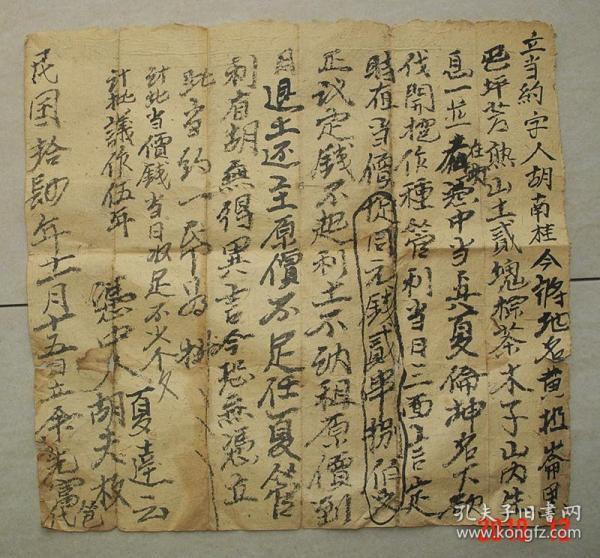 立当約字人胡南桂今将地名黄柆崙
芭坪芳熟山土貳塊棕茶木子山内生
息一並在内憑中当與夏倫坤名下
伐開挖作種管利当日三面言定
時值当價足同元钱貳串捌佰文
正议定钱不起利土不纳租原價到
日退土还至原價不足任夏管
利有胡無得異言今恐無憑立
此当约一帋為拠
計此当價钱当日收足不少个文
計批議作伍年
夏達云
憑中人胡夫枚
民国拾肆年十二月十五日立
孔夫子旧书网
www.kongfz.com